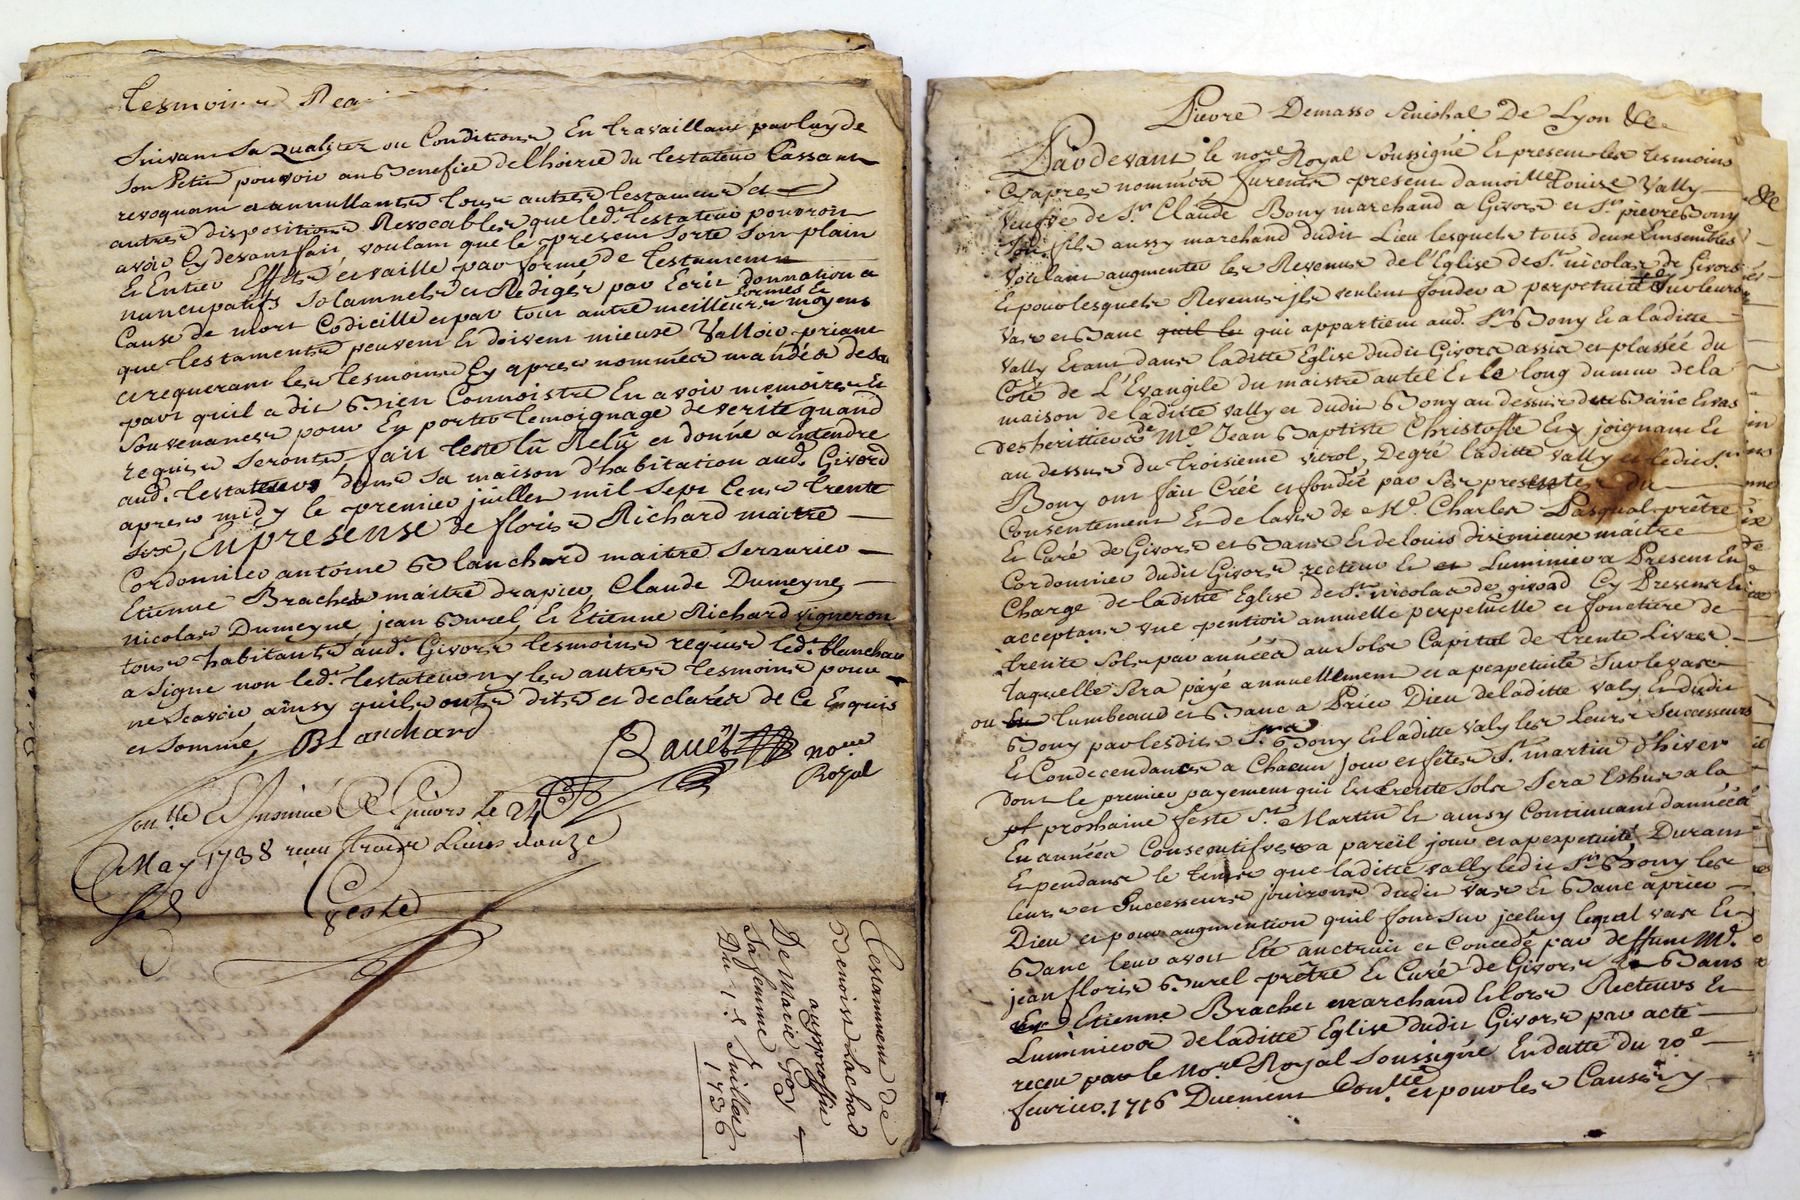 tesmoins Rea
Suivant Sa qualitez ou Conditions En travaillant par luy de
Son Petit pouvoir au Benefice de l'hoirie du testateur Cassant
revoquant et annullants tous autres testament et
autres dispositions Revocables que led. testateur pouvroit
avoir Cy devant fait, voulant que le present Sorte Son plain
Et Entier Effets et vaille par forme de testament
nuncupatifs Solamnels et Redigés par Ecrit donnation a
Cause de mort Codicille et par tout autre meilleurs formes Et moyens
que testaments peuvent Et doivent mieux Valloir priant
et requerant les tesmoins Cy apres nommés mandés de Sa
part qu'il a dit Bien Connoistre En avoir memoires Et
Souvenances pour En porter temoignage de verité quand
requis Seronts, fait leste lû Relû et donné a Entendre
aud. testateur dans Sa maison d'habitation aud. Givors
apres midy le premier juillet mil Sept Cens trente
Six, En presense de floris Richard maitre
Cordonnier antoine Blanchard maitre Serrurier
Etienne Brachet maitre drapier, Claude Dumeyne
nicolas Dumeyne jean Burel, Et Etienne Richard vigneron
tous habitants aud. Givors tesmoins requis led. blanchard
a Signé non led. testateur ny les autres tesmoins pour
ne Scavoir ainsy quils onts dits et declarés de Ce Enquis
et Sommé, Blanchard
Ravet nore
Royal
Con.lle & Insinué A Givors le 24
May 1738 recu troise Livres douze
sols
Geste
Testamment de
Benoist Lachad
au proffit
De Marie Gay
Sa femme
Du 1.r Juillet
1736
Pierre Demasso Seneshal De Lyon &c
Pardevant le nore Royal Soussigné Et present les tesmoins
Cy apres nommés furents present damoille Louise Vally
&c
veufve de Sr. Claude Bony marchand a Givors et Sr. pierre Bony
Son fils aussy marchand dudit Lieu lesquels tous deux Ensembles
Voulant augmenter les Revenus de l'Eglise de St. nicolas de Givors
Et pour lesquels Revenus ils veulent fonder a perpetuité Sur leurs
Vas et Banc quil le qui appartient aud. Sr. Bony Et a laditte
Vally Etant dans laditte Eglise dudit Givors assis et plassée du
Coté de L'Evangile du maistre autel Et le long du mur de la
maison de laditte vally et dudit Bony au dessus du Banc Et vas
des herittiers de Me Jean Baptiste Christofle Et joignant Et
au dessus du troisieme vitrol, Degré laditte vally et ledit Sr.
Bony ont fait Créé et fondée par Ses presentes du
Consentement Et de lavis de Mr. Charles Pasqual prêtre
Et Curé de Givors et Bans Et de louis disimieux maitre
Cordonnier dudit Givors recteur Et et Luminier a Present En
Charge de laditte Eglise de St. nicolas de givord Cy Present Et
acceptans vne pention annuelle perpetuelle et fonctiere de
trente Sols par années au Sols Capital de trente Livres
laquelle Sera payé annuellement et a perpetuité Sur le vas
ou Et tumbeaud et Banc a Prier Dieu de laditte valy Et dudit
Bony par lesdits Srs Bony Et laditte Valy les Leurs Successeurs
Et Condecendances a Chacun jour et fêtes St. martin d'hiver
Dont le premier payement qui Est trente Sols Sera Eshus a la
pt prochaine feste St. Martin Et ainsy Continuant dannéé
En années Consecutifves a pareil jour et a perpetuité Durant
Et pendans le tems que laditte vally ledit Sr. Bony les
leurs et Successeurs jouirons dudit vas Et Banc a prier
Dieu et pour augmention quil font Sur jceluy lequel vas Et
Banc leur avoit Eté auctruit et Concedé par deffunt Mr.
jean floris Burel prêtre Et Curé de Givors Et Bans
Etienne Brachet marchand Et lors Recteurs Et
Luminiers de laditte Eglise dudit Givors par acte
recu par le Nore Royal Soussigné En datte du 20e
fevrier 1716 Duement Con.llé et pour les Causes y